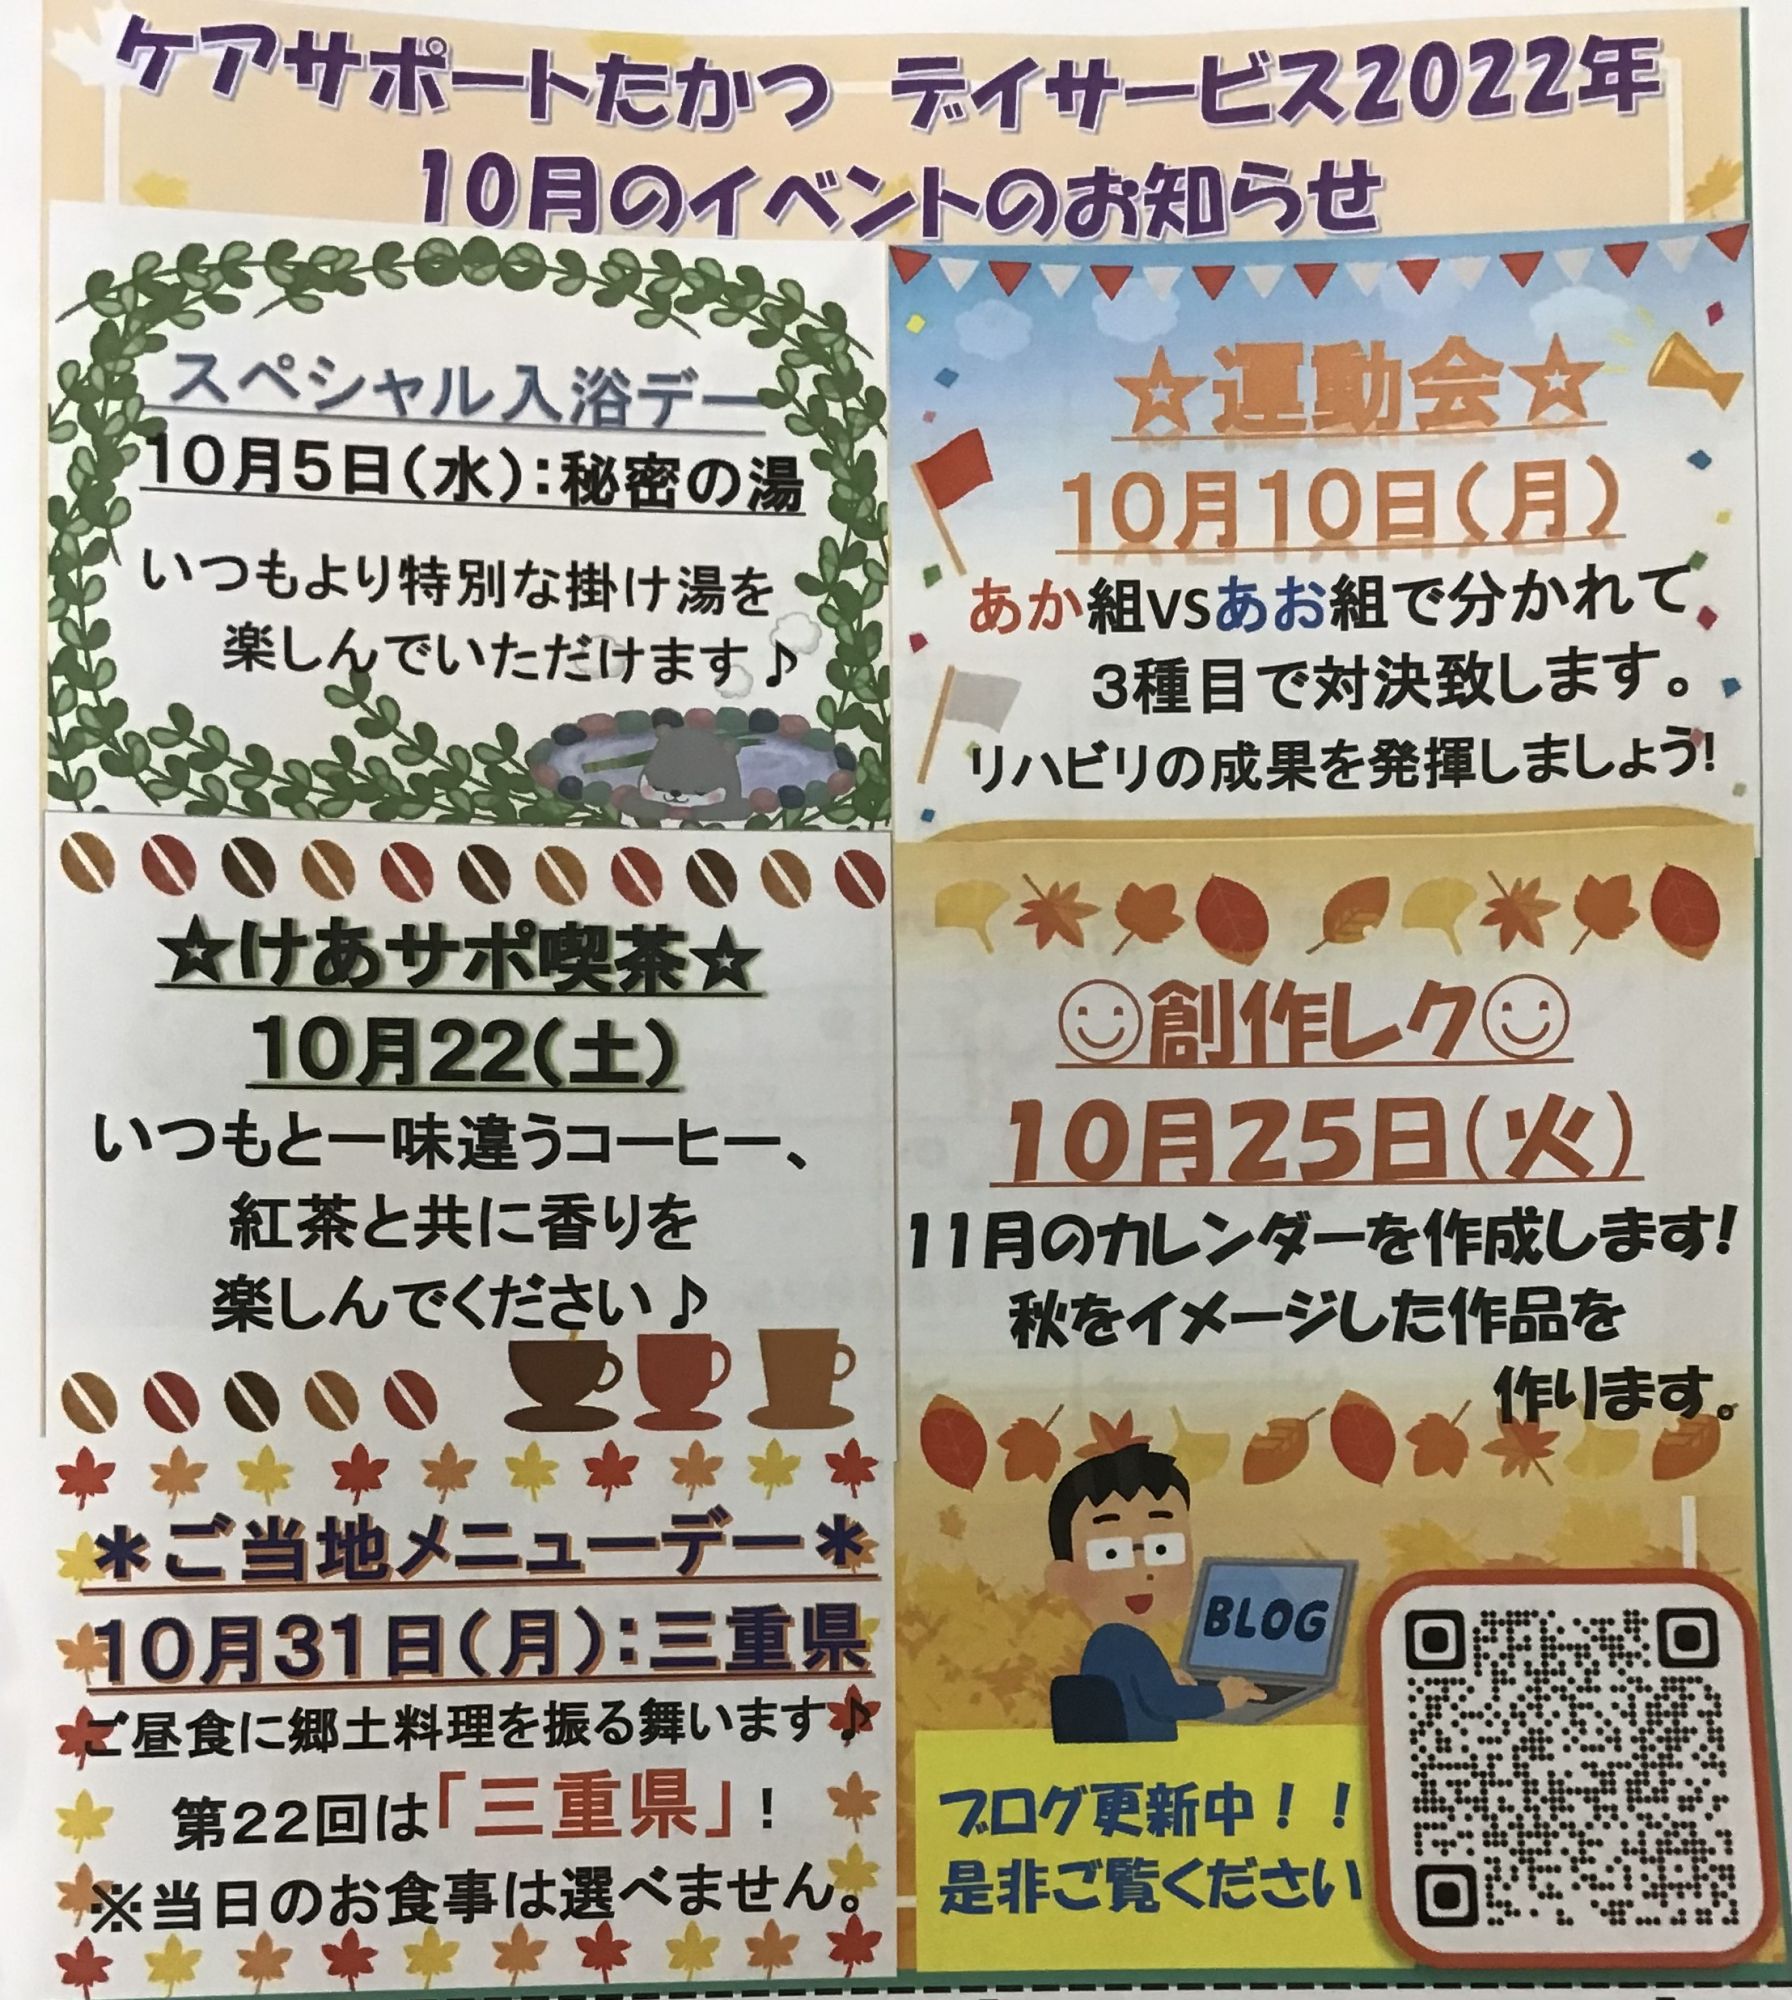 ケアサポートたかつ　デイサービス2022年
10月のイベントのお知らせ
スペシャル入浴デー
10月5日(水):秘密の湯
いつもより特別な掛け湯を
楽しんでいただけます♪
☆運動会☆
10月10日(月)
あか組VSあお組で分かれて
3種目で対決致します。
リハビリの成果を発揮しましょう!
☆けあサポ喫茶☆
10月22(土)
いつもと一味違うコーヒー、
紅茶と共に香りを
楽しんでください♪
☺創作レク☺
10月25日(火)
11月のカレンダーを作成します!
秋をイメージした作品を
作ります。
＊ご当地メニューデー＊
10月31日(月):三重県
ご昼食に郷土料理を振る舞います♪
第22回は「三重県」!
※当日のお食事は選べません。
BLOG
ブログ更新中!!
是非ご覧ください